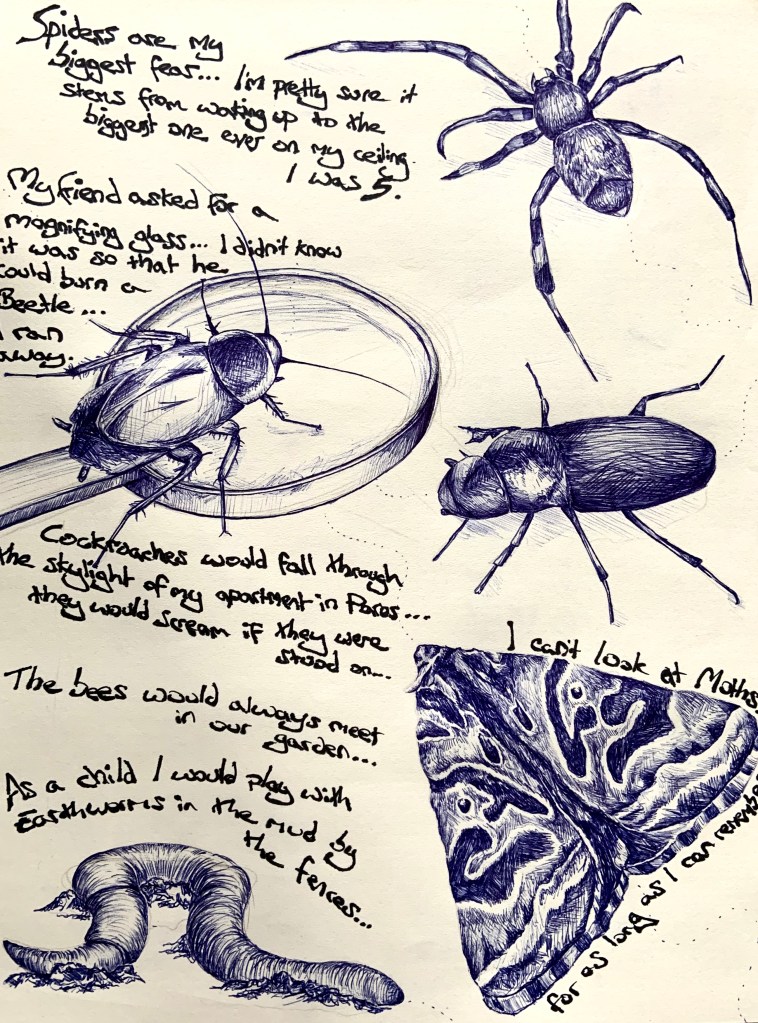 Spiders are my
biggest fear... I'm pretty sure it
stems from waking up to the
biggest one ever on my ceiling.
I was 5.
My friend asked for a
magnifying glass... I didn't know
it was so that he
could burn a
Beetle...
I ran
away.
Cockroaches would fall through
the skylight of my apartment in Paros...
they would scream if they were
stood on...
The bees would always meet
in our garden...
As a child I would play with
Earthworms in the mud by
the fences...
I can't look at Moths.
for as long as I can remember